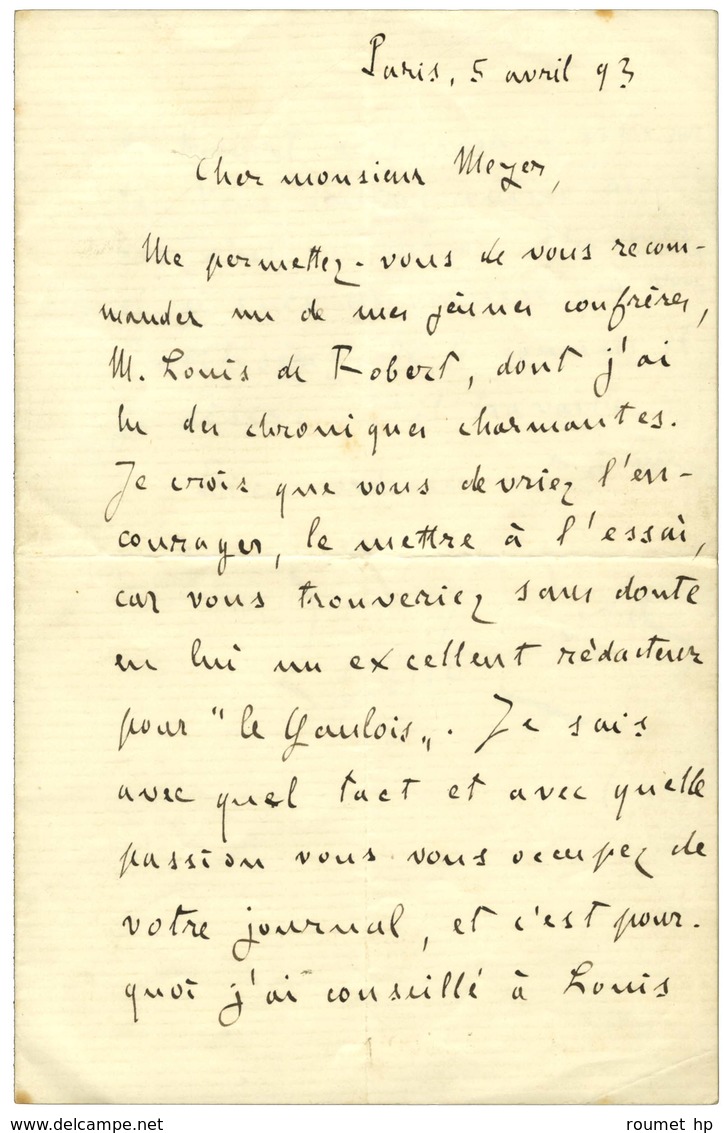 Paris, 5 avril 93
Cher monsieur Meyer,
Me permettez-vous de vous recom-
mander un de mes jeunes confrères,
M. Louis de Robert, dont j'ai
lu des chroniques charmantes.
Je crois que vous devriez l'en-
courager, le mettre à l'essai,
car vous trouveriez sans doute
en lui un excellent rédacteur
pour "le Gaulois". Je sais
avec quel tact et avec quelle
passion vous vous occupez de
votre journal, et c'est pour-
quoi j'ai conseillé à Louis
www.delcampe.net
roumet hp